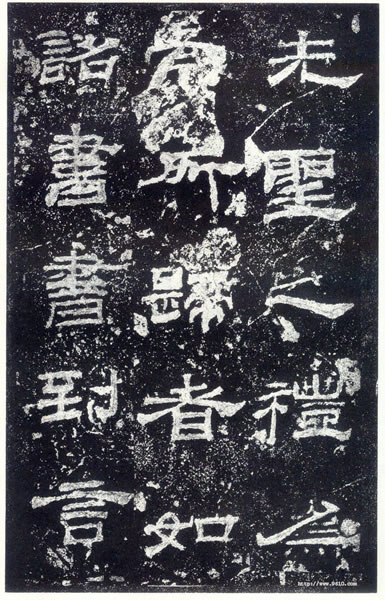 先聖之禮為
所歸者如
詔書書到言
http://www.9610.com